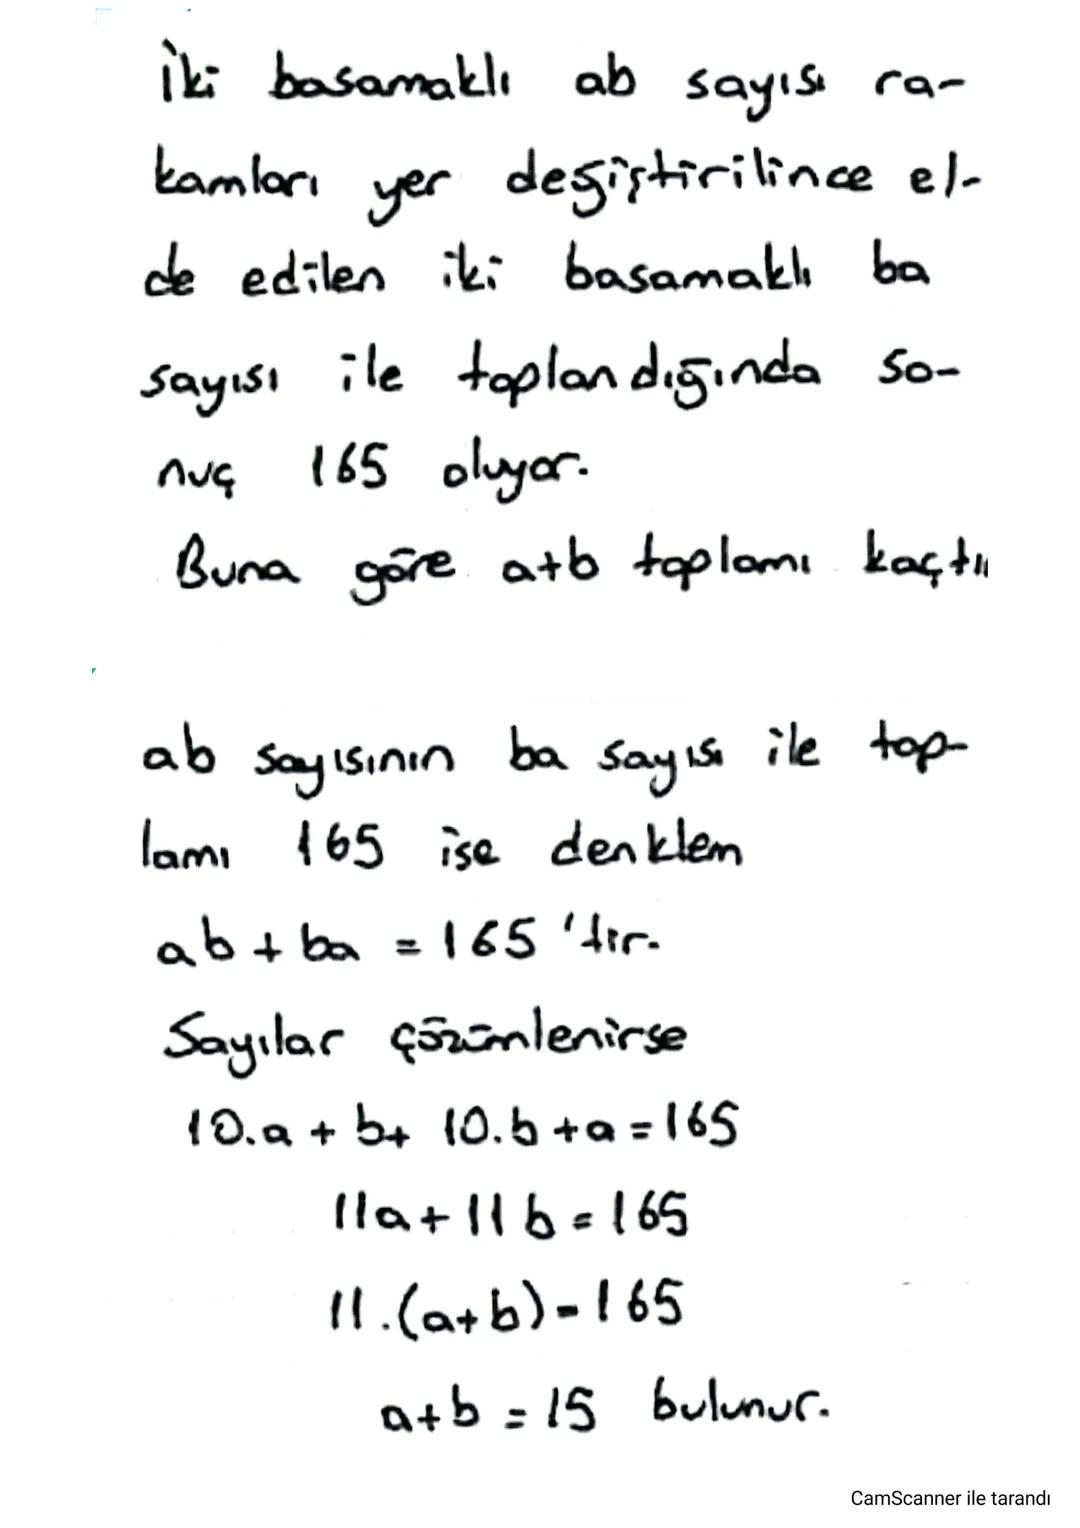 İki basamaklı ab sayısı ra-
kamları yer değiştirilince el-
de edilen iki basamaklı ba
sayısı ile toplandığında so-
nuç 165 oluyor.
Buna göre a+b toplamı kaçtır
ab sayısının ba sayısı ile top-
lamı 165 ise denklem
ab + ba = 165 'tir.
Sayılar çözümlenirse
10.a + b + 10.b + a = 165
11a + 11b = 165
11.(a+b) = 165
a+b = 15 bulunur.
CamScanner ile tarandı